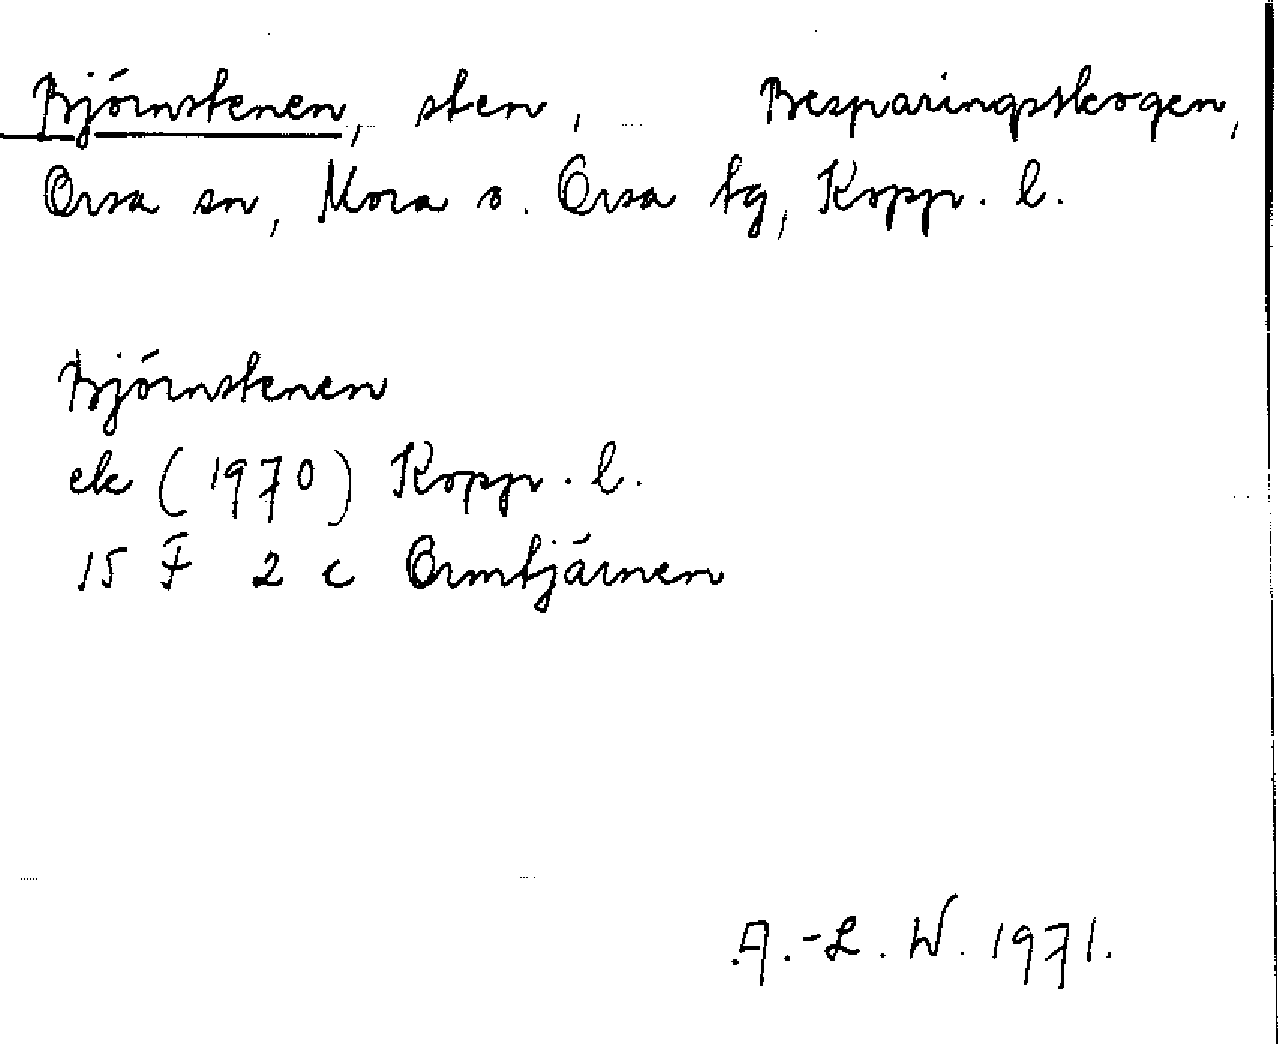 Björnstenen, sten, Besparingsskogen,
Orsa sn, Mora o. Orsa tg, Kopp. l.
Björnstenen
ek (1970) Kopp. l.
15 F 2 c Ormtjärnen
A.-L. W. 1971.